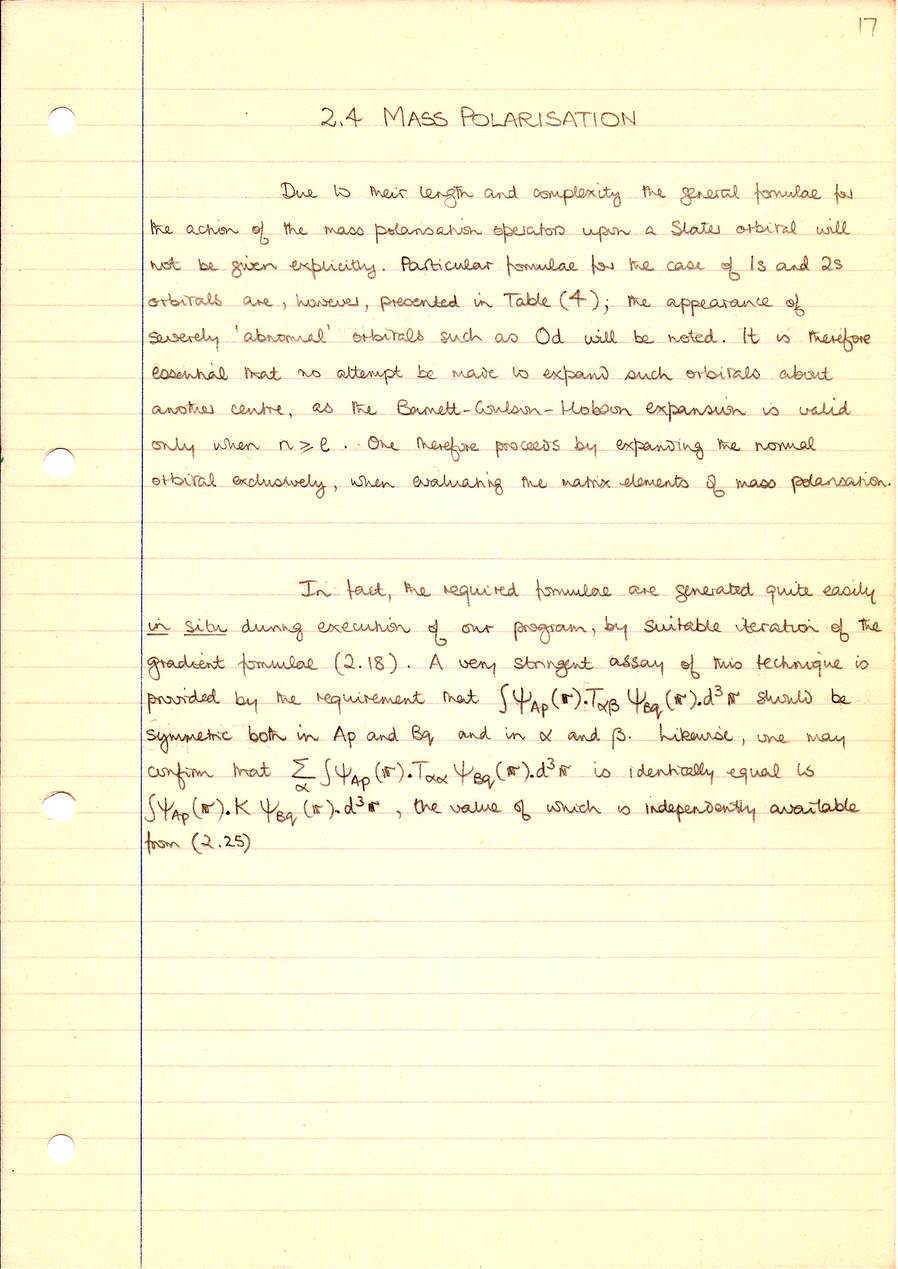 17
2.4 MASS POLARISATION
Due to their length and complexity the general formulae for
the action of the mass polarisation operators upon a Slater orbital will
not be given explicitly. Particular formulae for the case of 1s and 2s
orbitals are, however, presented in Table (4); the appearance of
severely 'abnormal' orbitals such as 0d will be noted. It is therefore
essential that no attempt be made to expand such orbitals about
another centre, as the Barnett-Coulson-Hobson expansion is valid
only when n ⩾ ℓ. One therefore proceeds by expanding the normal
orbital exclusively, when evaluating the matrix elements of mass polarisation.
In fact, the required formulae are generated quite easily
in situ during execution of our program, by suitable iteration of the
gradient formulae (2.18). A very stringent assay of this technique is
provided by the requirement that ∫ψ_Ap(r).T_αβ ψ_Bq(r).d³r should be
symmetric both in Ap and Bq and in α and β. Likewise, one may
confirm that Σ_α ∫ψ_Ap(r).T_αα ψ_Bq(r).d³r is identically equal to
∫ψ_Ap(r).K ψ_Bq(r).d³r, the value of which is independently available
from (2.25)